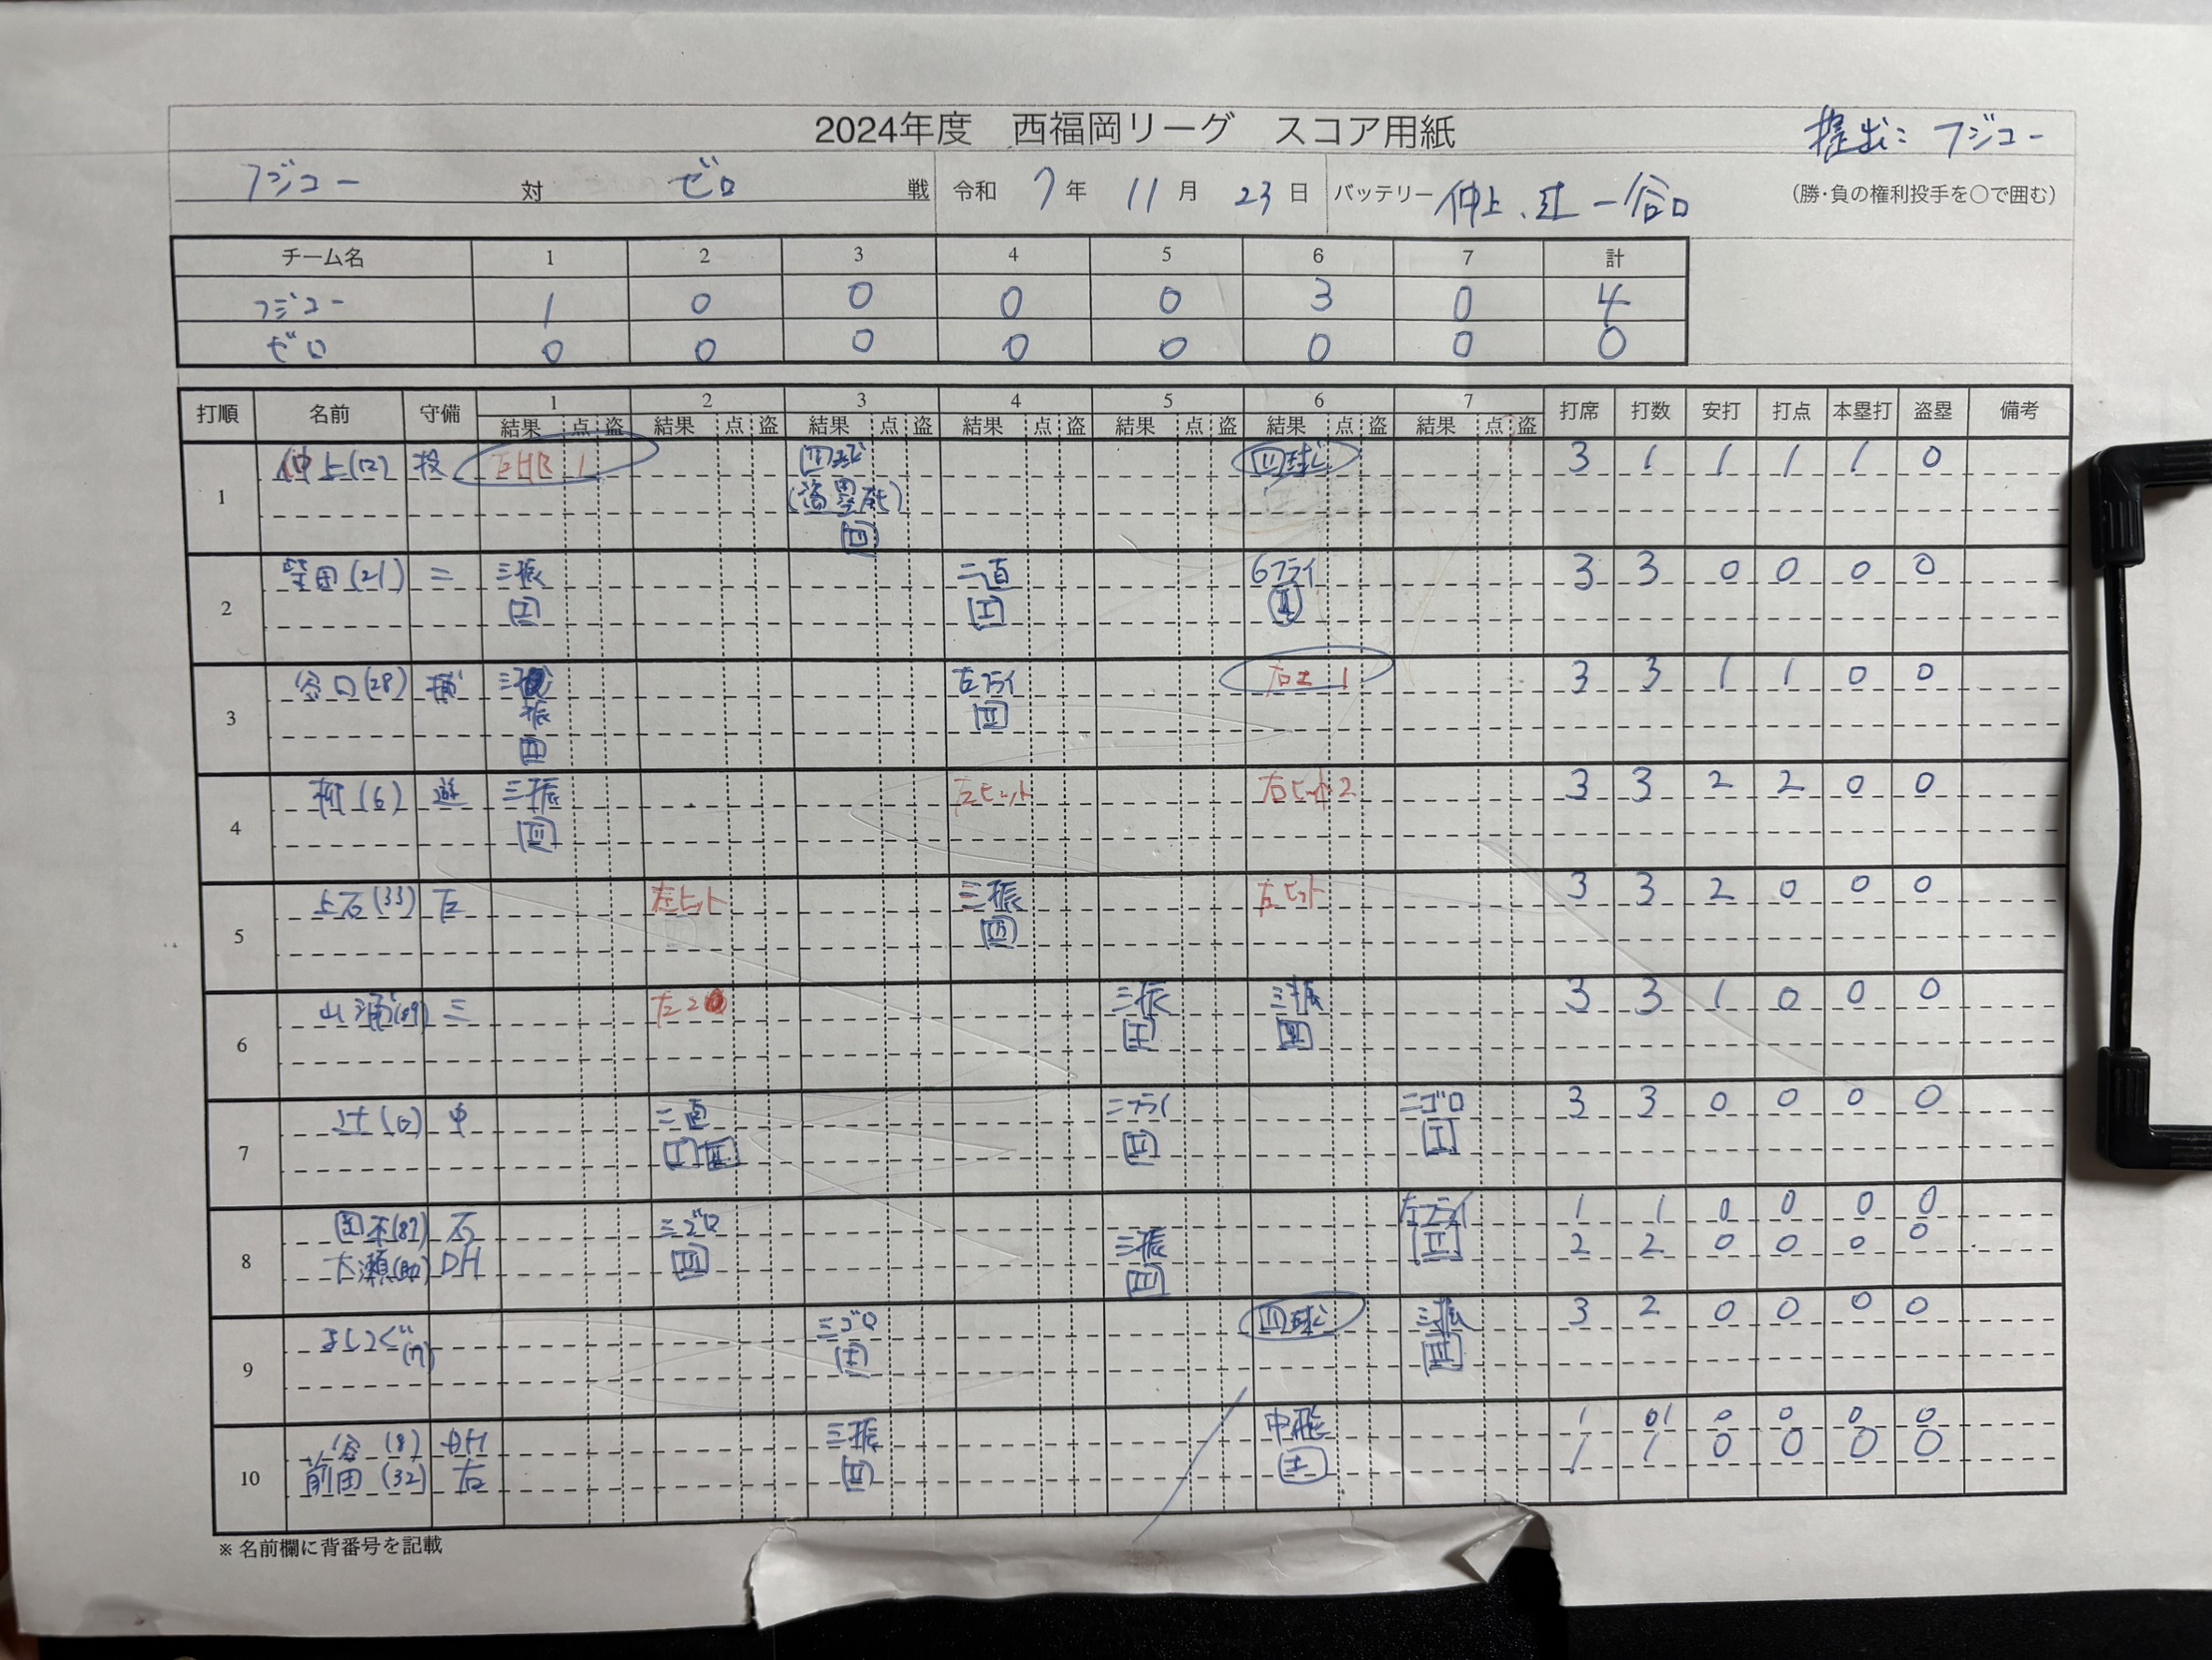 2024年度 西福岡リーグ スコア用紙 提出: フジコー
フジコー 対 ゼロ 戦 令和 7年 11月 23日 バッテリー 仲上、辻 ー 谷口 (勝・負の権利投手を○で囲む)
チーム名 1 2 3 4 5 6 7 計
フジコー 1 0 0 0 0 3 0 4
ゼロ 0 0 0 0 0 0 0 0
打順 名前 守備 1 2 3 4 5 6 7 打席 打数 安打 打点 本塁打 盗塁 備考
結果 点 盗 結果 点 盗 結果 点 盗 結果 点 盗 結果 点 盗 結果 点 盗 結果 点 盗
1 仲上(12) 投 左HR 1 四球 四球 3 1 1 1 1 0
(盗塁死)
III
2 柴田(21) 二 三振 二直 6フライ 3 3 0 0 0 0
I I II
3 谷口(28) 捕 三 左フライ 右2 1 3 3 1 1 0 0
振 II
II
4 柳(6) 遊 三振 左ヒット 右ヒット 2 3 3 2 2 0 0
III
5 上石(33) 左 左ヒット 三振 左ヒット 3 3 2 0 0 0
III
6 山浦(89) 三 左2 三振 三振 3 3 1 0 0 0
I III
7 辻(0) 中 三直 三フライ 二ゴロ 3 3 0 0 0 0
I II II I
8 岡本(87) 右 三ゴロ 左フライ 1 1 0 0 0 0
大瀬(助) DH III 三振 II 2 2 0 0 0 0
III
9 よしつぐ(17) 三ゴロ 四球 三振 3 2 0 0 0 0
I III
10 谷(8) DH 三振 中飛 1 01 0 0 0 0
前田(32) 右 II I 1 1 0 0 0 0
※ 名前欄に背番号を記載